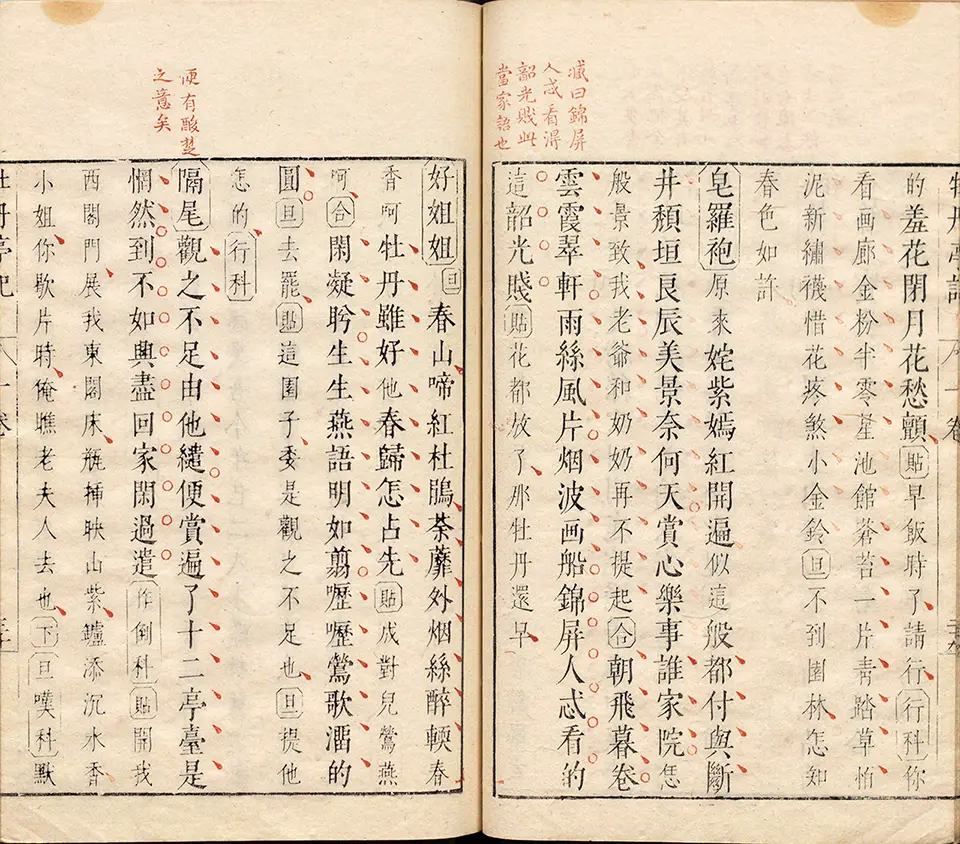 臧曰錦屏
人忒看得
韶光賤此
當家語也
的羞花閉月花愁顫貼早飯時了請行行科你
看画廊金粉半零星池館蒼苔一片靑踏草怕
泥新繡襪惜花疼煞小金鈴旦不到園林怎知
春色如許
皂羅袍原來姹紫嫣紅開遍似這般都付與斷
井頹垣良辰美景奈何天賞心樂事誰家院恁
般景致我老爺和奶奶再不提起合朝飛暮卷
雲霞翠軒雨絲風片烟波画船錦屏人忒看的
這韶光賤貼花都放了那牡丹還早
便有酸楚
之意矣
好姐姐旦春山啼紅杜鵑荼蘼外烟絲醉輭春
香呵牡丹雖好他春歸怎占先貼成對兒鶯燕
呵合閑凝眄生生燕語明如翦嚦嚦鶯歌溜的
圓旦去罷貼這園子委是觀之不足也旦提他
怎的行科
隔尾觀之不足由他繾便賞遍了十二亭臺是
惘然到不如興盡回家閑過遣作倒科貼開我
西閣門展我東閣床瓶揷映山紫鑪添沉水香
小姐你歇片時俺瞧老夫人去也下旦嘆科默